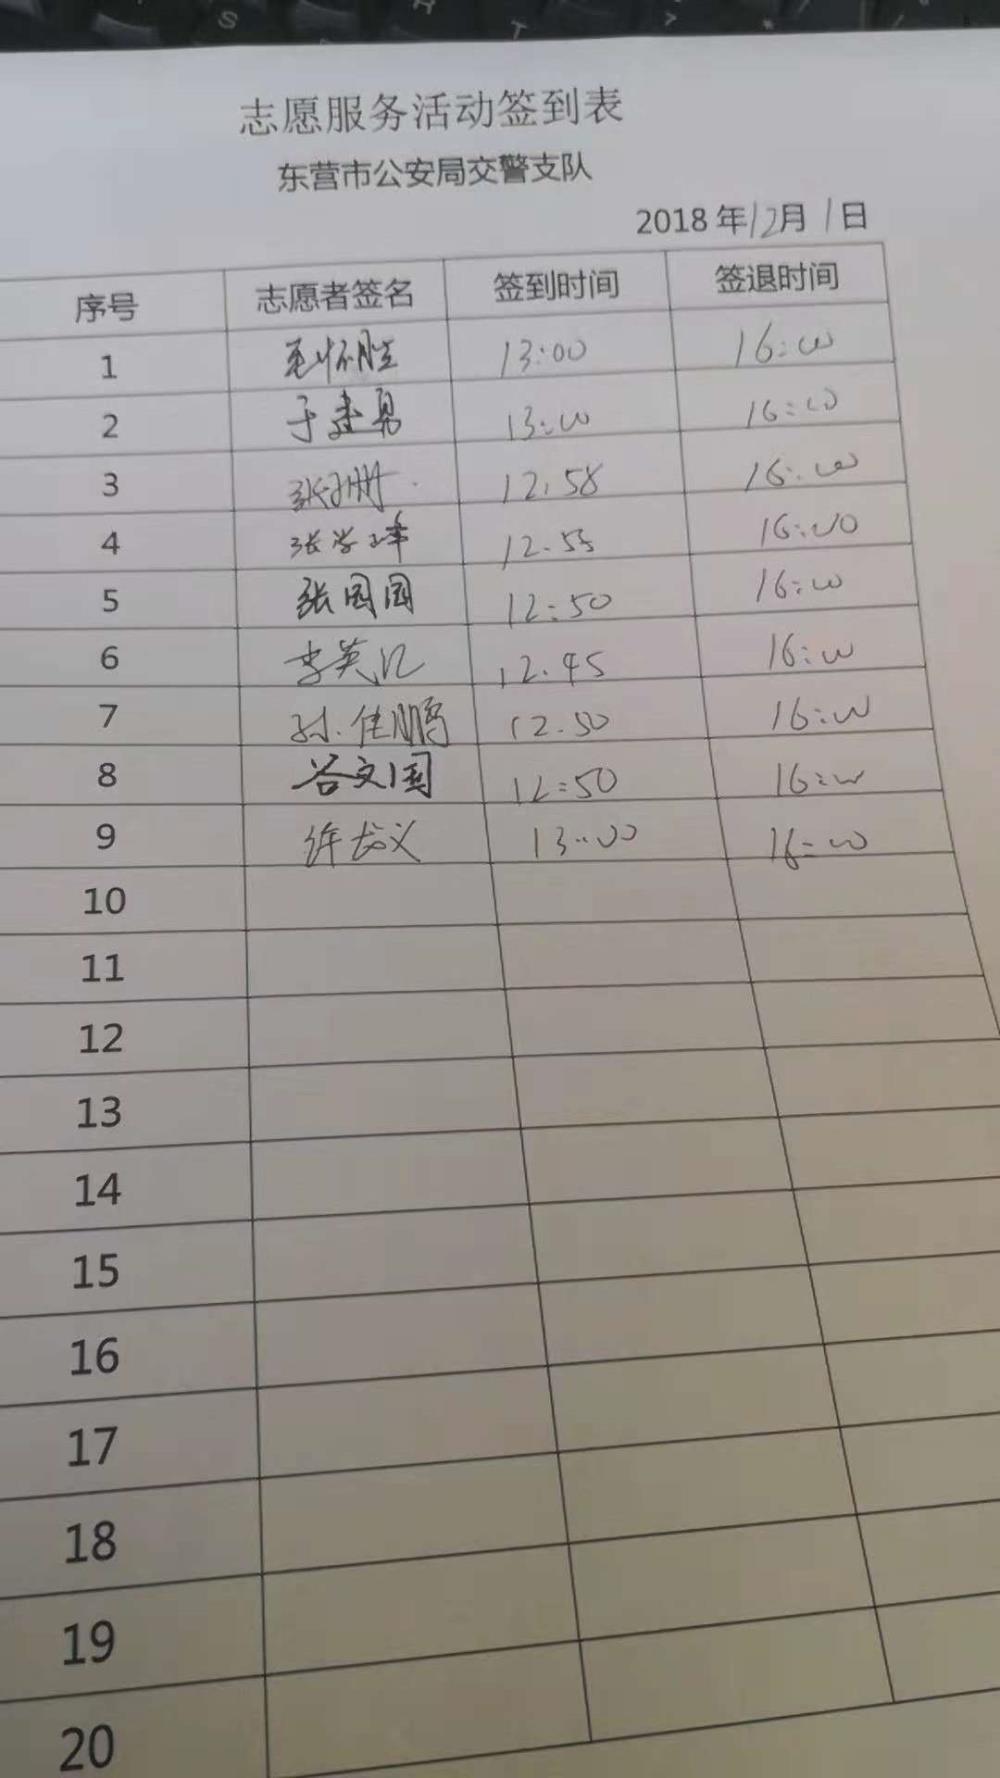 志愿服务活动签到表
东营市公安局交警支队
2018 年12月 1日
序号 志愿者签名 签到时间 签退时间
1 毛怀胜 13:00 16:00
2 于建勇 13:00 16:00
3 张 12:58 16:00
4 张学峰 12:55 16:00
5 张园园 12:50 16:00
6 李英汇 12:45 16:00
7 孙佳鹏 12:50 16:00
8 谷文国 12:50 16:00
9 徐龙义 13:00 16:00
10
11
12
13
14
15
16
17
18
19
20